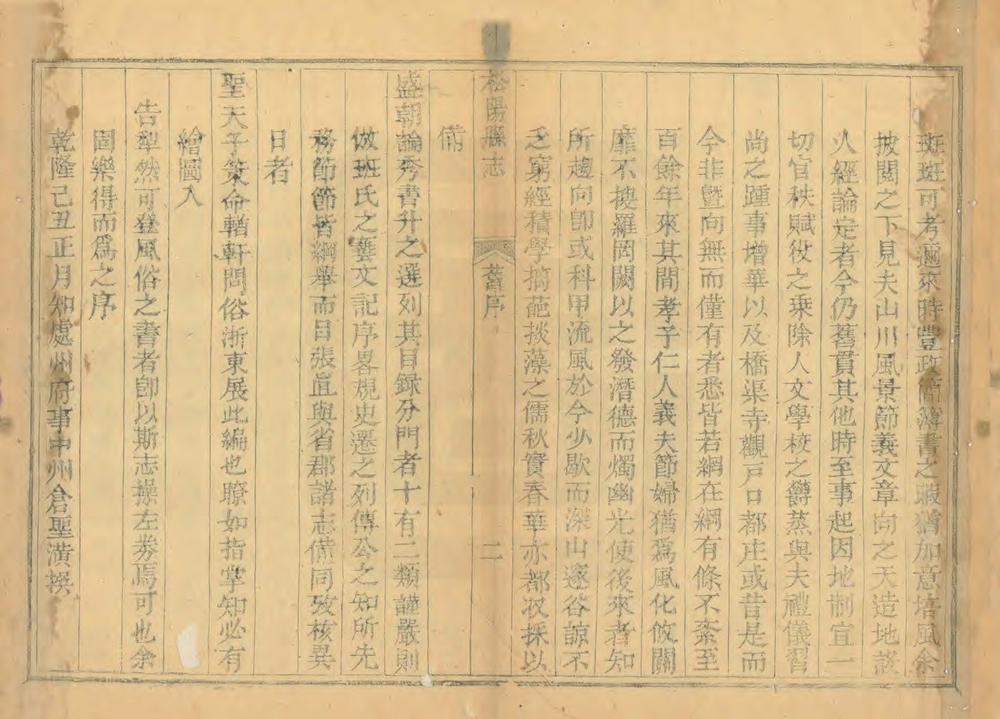 斑斑可考邇來時豐政簡簿書之暇猶加意培風余
披閱之下見夫山川風景節義文章向之天造地設
人經論定者今仍舊貫其他時至事起因地制宜一
切官秩賦役之乗除人文學校之欝蒸與夫禮儀習
尚之踵事增華以及橋渠寺觀戸口都庄或昔是而
今非曁向無而僅有者悉皆若網在綱有條不紊至
百餘年來其間孝子仁人義夫節婦猶爲風化攸關
靡不摟羅罔闕以之發潛德而燭幽光使後來者知
所趨向卽或科甲流風於今少歇而深山邃谷諒不
乏窮經積學摛葩掞藻之儒秋實春華亦都收採以
備
松陽縣志
舊序
二
盛朝論秀書升之選列其目録分門者十有二類謹嚴則
倣班氏之藝文記序畧規史遷之列傳公之知所先
務節節皆綱舉而目張宜與省郡諸志備同攷核異
日者
聖天子策命輶軒問俗浙東展此編也瞭如指掌知必有
繪圖入
告犁然可登風俗之書者卽以斯志操左劵焉可也余
固樂得而爲之序
乾隆己丑正月知處州府事中州倉聖潢撰